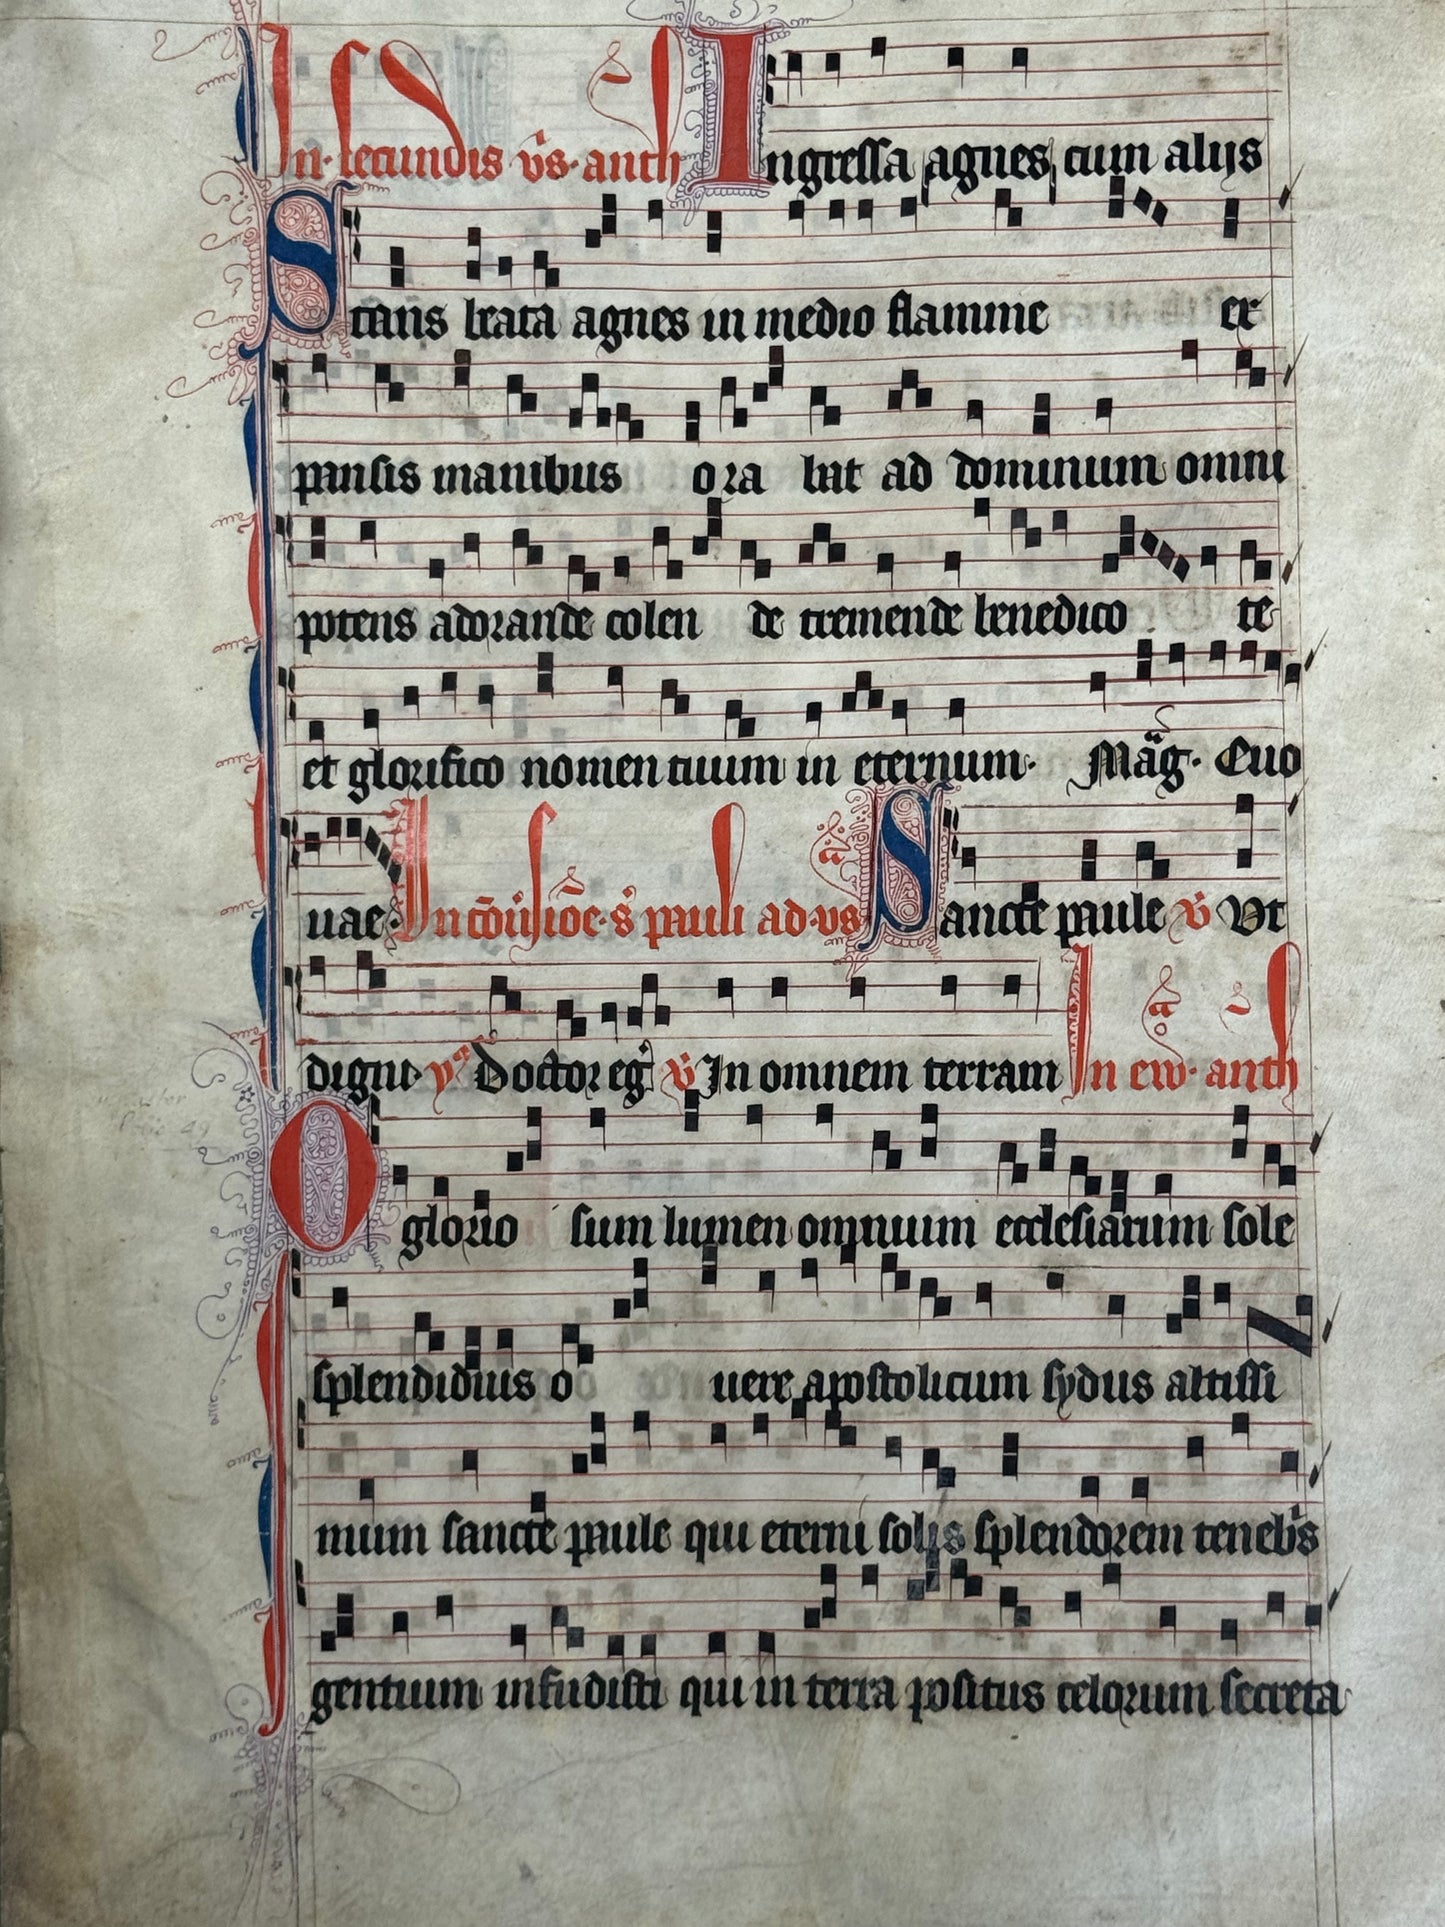 In secundis vs̄ anth Ingressa agnes cum alijs
Stans beata agnes in medio flamme ex
pansis manibus ora bat ad dominum omni
potens adorande colen de tremende benedico te
et glorifico nomen tuum in eternum. Mag. Euo
uae. In ꝯūsiōe s̄ pauli ad vs̄ Sancte paule v̄ Vt
digni. y Doctor eḡ v̄ In omnem terram In ew. anth
O glorio sum lumen omnium ecclesiarum sole
splendidius o uere apostolicum sydus altissi
mum sancte paule qui eterni solis splendorem teneb̄s
gentium infudisti qui in terra positus celorum secreta